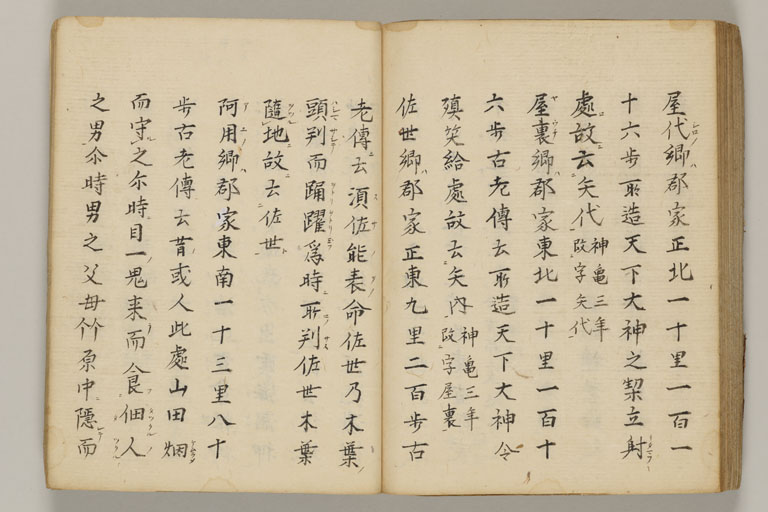 屋代郷郡家正北一十里一百一
十六歩所造天下大神之埾立射
處故云矢代神亀三年改字矢代
屋裏郷郡家東北一十里一百十
六歩古老傳云所造天下大神令
殖笶給處故云矢内神亀三年改字屋裏
佐世郷郡家正東九里二百歩古
老傳云須佐能袁命佐世乃木葉
頭判而踊躍為時所判佐世木葉
隨地故云佐世
阿用郷郡家東南一十三里八十
歩古老傳云昔或人此處山田烟
而守之尓時目一鬼来而食佃人
之男尓時男之父母竹原中隱而